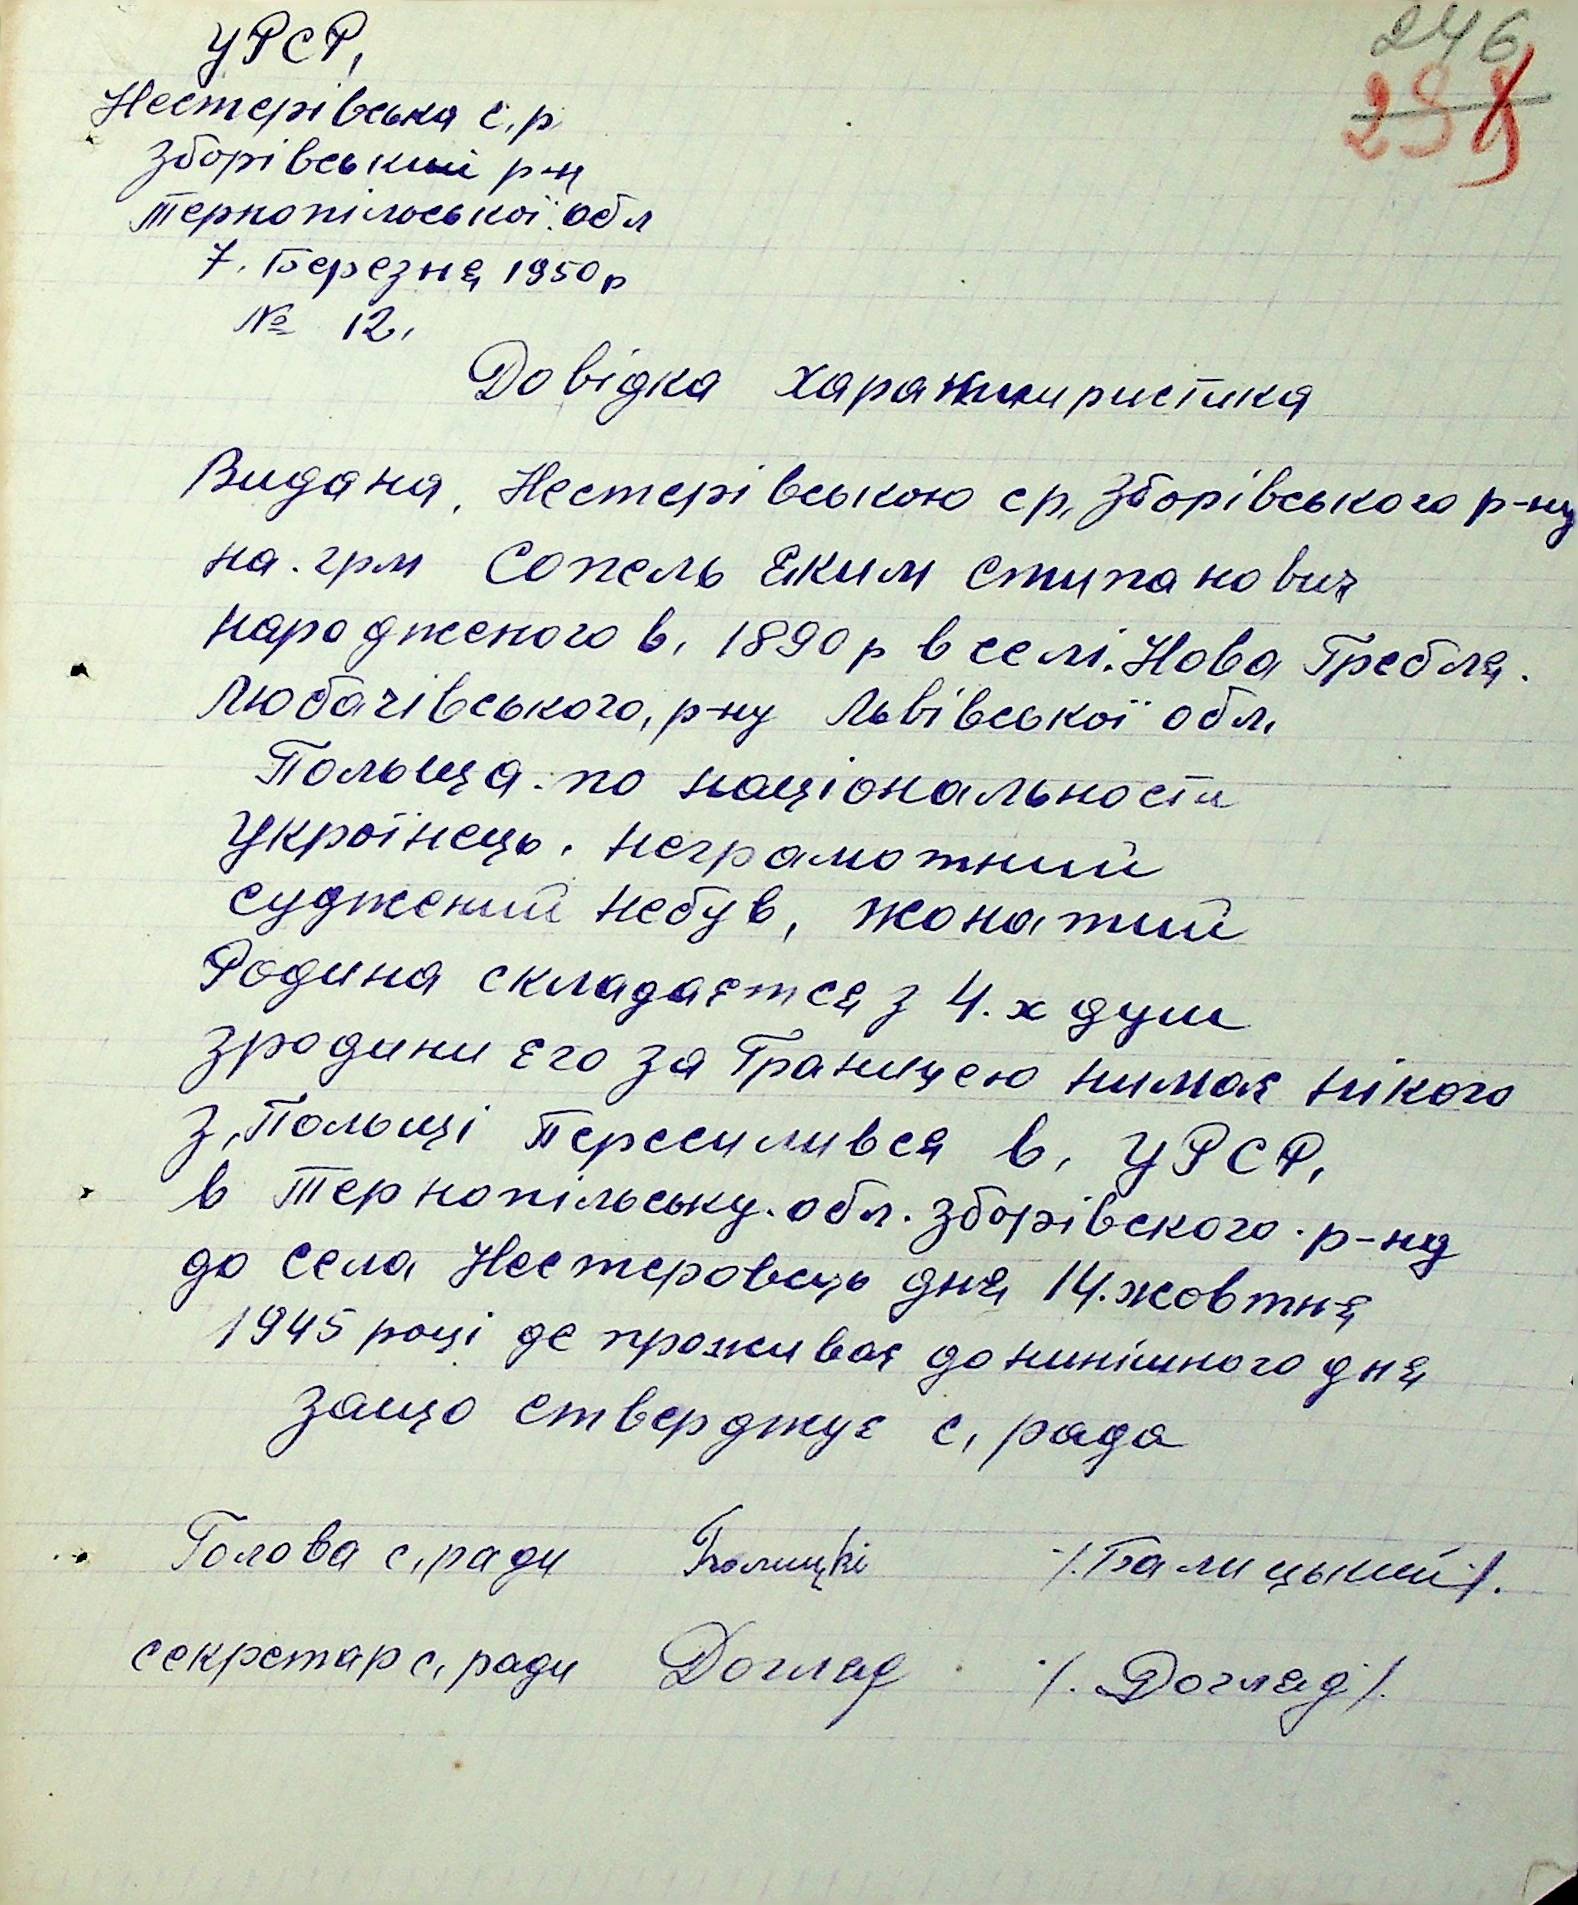 246
УРСР,
Нестерівська с,р
Зборівський р-н
Тернопільської обл
7. Березня 1950р
№ 12,
Довідка характиристика
Видана, Нестерівською ср, Зборівського р-ну
на. грм Сопель Яким Стипанович
народженого в, 1890р в селі. Нова Гребля.
Любачівського, р-ну Львівської обл,
Польща. по національности
Українець. неграмотний
суджений небув, жонатий
Родина складаєтся з 4.х душ
зродини єго за Границею нимає нікого
з, Польщі Пересиливсяя в, УРСР,
в Тернопільську. обл. Зборівского. р-ну
до села Нестеровець дня 14. жовтня
1945 році де проживає до нинішного дня
защо стверджує с, рада
Голова с, ради Балицkі /. Балицький /.
секретар с, ради Догляд /. Догляд /.